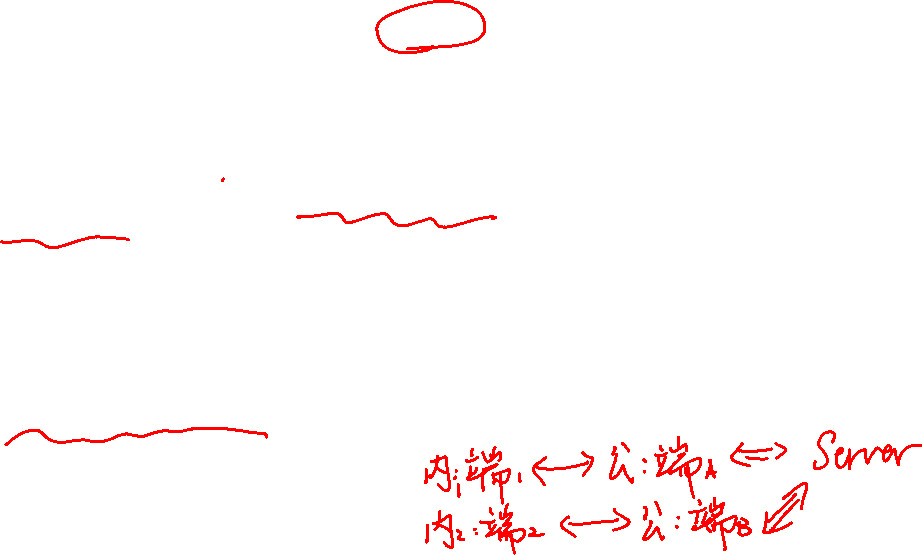 内₁:端₁ ↔ 公:端A ⇔ Server
内₂:端₂ ↔ 公:端B